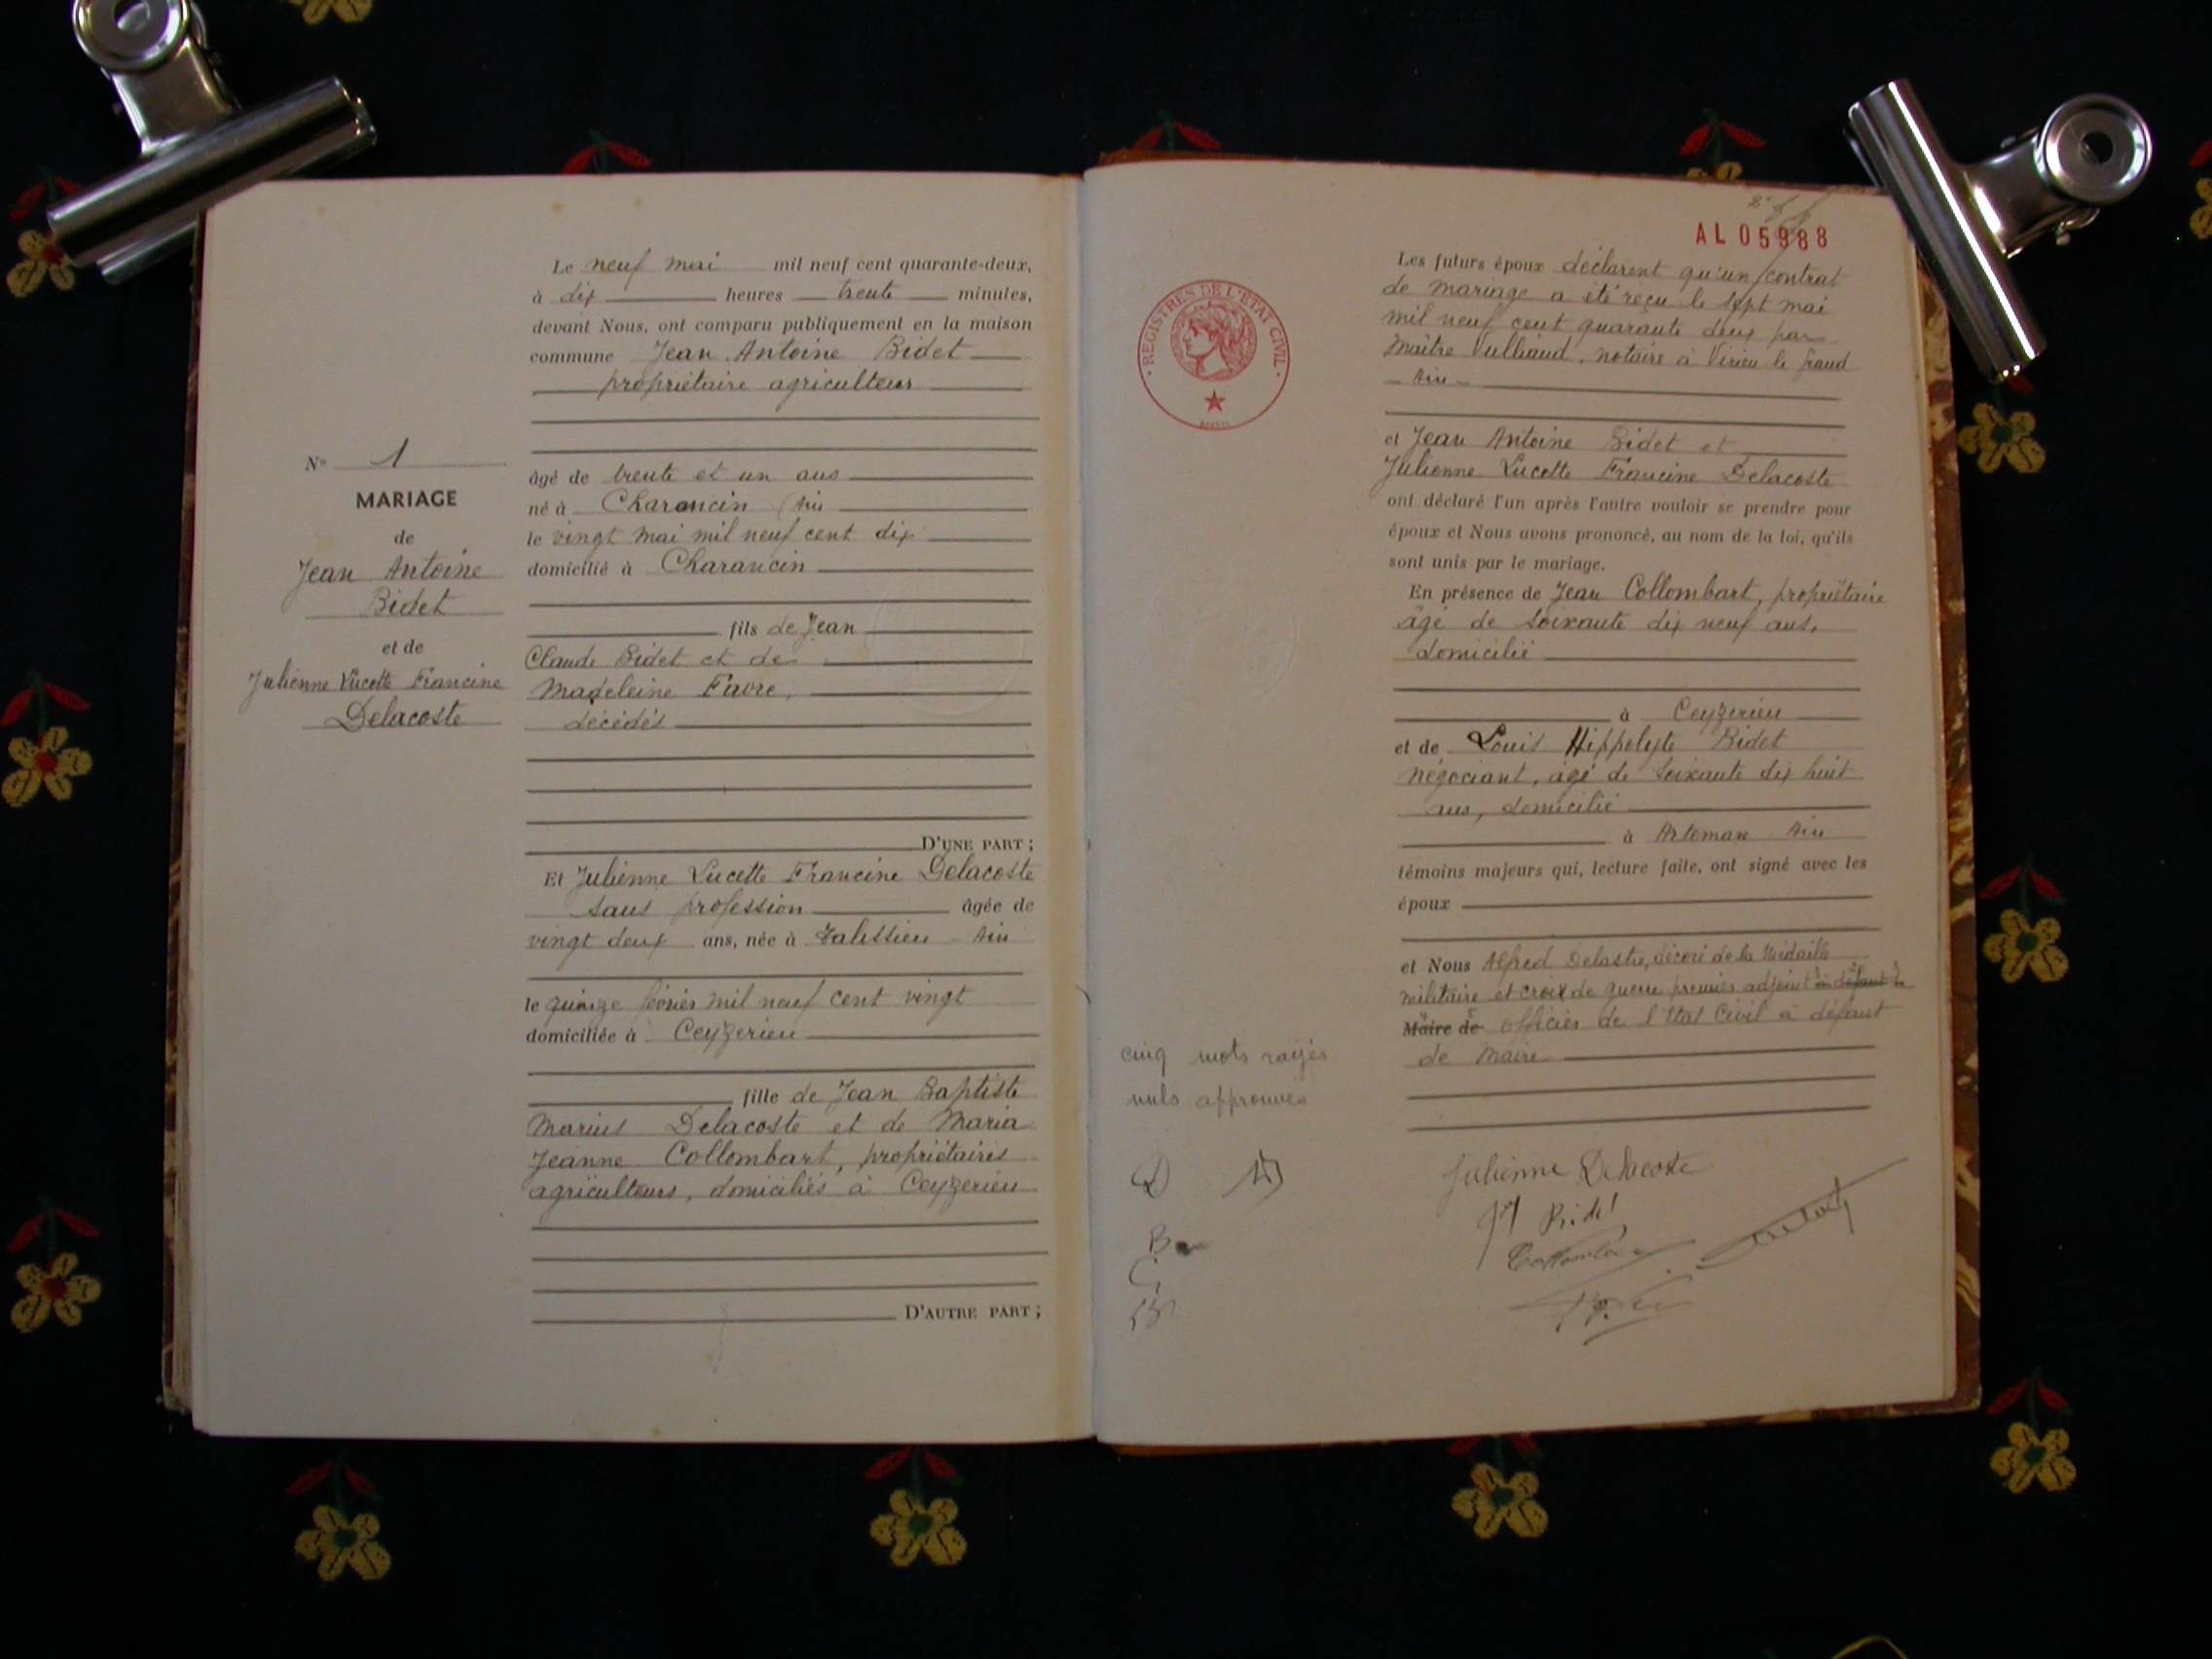 Le neuf mai mil neuf cent quarante-deux,
à dix heures trente minutes,
devant Nous, ont comparu publiquement en la maison
commune Jean Antoine Bidet
propriétaire agriculteur
N° 1
MARIAGE
de
Jean Antoine
Bidet
et de
Julienne Lucette Francine
Delacoste
âgé de trente et un ans
né à Charancin (Ain
le vingt mai mil neuf cent dix
domicilié à Charancin
fils de Jean
Claude Bidet et de
Madeleine Favre,
décédés
D'UNE PART ;
Et Julienne Lucette Francine Delacoste
sans profession âgée de
vingt deux ans, née à Talissieu Ain
le quinze février mil neuf cent vingt
domiciliée à Ceyzerieu
fille de Jean Baptiste
Marius Delacoste et de Maria
Jeanne Collombart, propriétaires
agriculteurs, domiciliés à Ceyzerieu
D'AUTRE PART ;
AL 05988
REGISTRES DE L'ÉTAT CIVIL
Les futurs époux déclarent qu'un contrat
de mariage a été reçu le sept mai
mil neuf cent quarante deux par
Maître Vulliaud, notaire à Virieu le Grand
Ain
et Jean Antoine Bidet et
Julienne Lucette Francine Delacoste
ont déclaré l'un après l'autre vouloir se prendre pour
époux et Nous avons prononcé, au nom de la loi, qu'ils
sont unis par le mariage.
En présence de Jean Collombart, propriétaire
âgé de soixante dix neuf ans,
domicilié
à Ceyzerieu
et de Louis Hippolyte Bidet
négociant, âgé de soixante dix huit
ans, domicilié
à Artemare Ain
témoins majeurs qui, lecture faite, ont signé avec les
époux
et Nous Alfred Delastre, décoré de la Médaille
militaire et croix de guerre premier adjoint à défaut de
Maire de officier de l'Etat Civil à défaut
de Maire
cinq mots rayés
nuls approuvés
Julienne Delacoste
Bidet